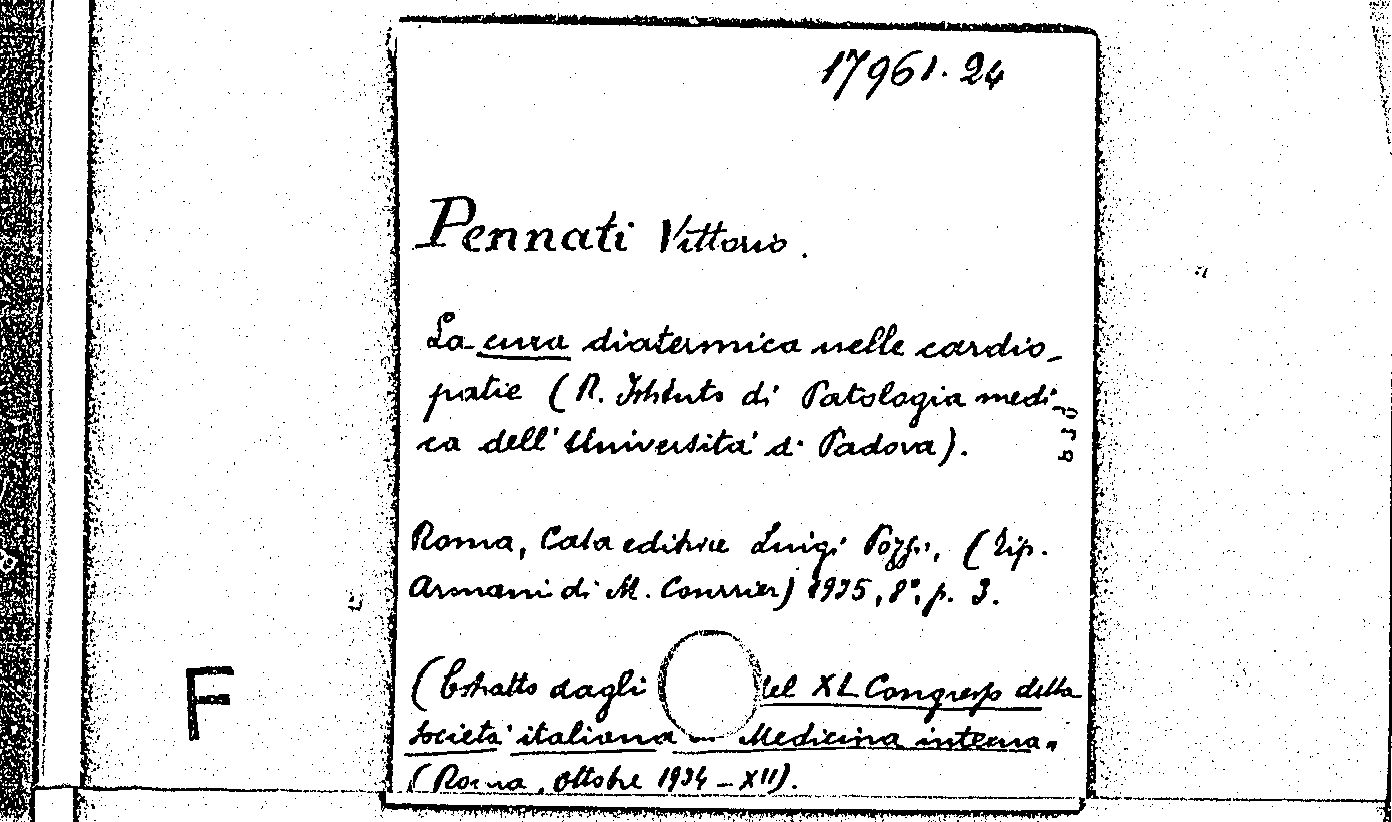 17961.24
Pennati Vittorio.
La cura diatermica nelle cardio-
patie (R. Istituto di Patologia medi-
ca dell'Università di Padova).
Roma, Casa editrice Luigi Pozzi, (Tip.
Armani di M. Courrier) 1935, 8°, p. 3.
(Estratto dagli del XL Congresso della
Società italiana Medicina interna.
(Roma, ottobre 1934-XII).
F